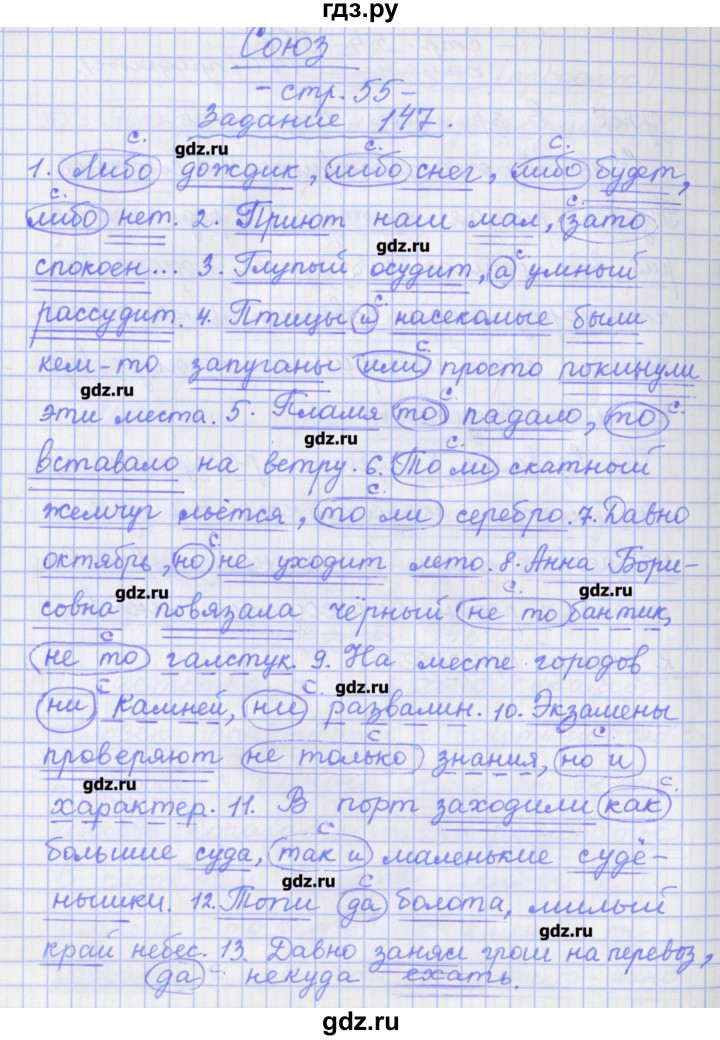 гдз.ру
Союз
- стр. 55 -
Задание 147.
gdz.ru
с. с. с.
1. Либо дождик, либо снег, либо будет,
с.
либо нет. 2. Приют наш мал, зато
gdz.ru
с.
спокоен... 3. Глупый осудит, а умный
gdz.ru
с.
рассудит. 4. Птицы и насекомые были
с.
кем-то запуганы или просто покинули
gdz.ru
с. с.
эти места. 5. Пламя то падало, то
gdz.ru
с.
вставало на ветру. 6. То ли скатный
с.
жемчуг льётся, то ли серебро. 7. Давно
с.
октябрь, но не уходит лето. 8. Анна Бори-
gdz.ru с. gdz.ru
совна повязала чёрный не то бантик,
с
не то галстук. 9. На месте городов
с с. gdz.ru
ни камней, ни развалин. 10. Экзамены
с. с.
проверяют не только знания, но и
gdz.ru
с.
характер. 11. В порт заходили как
с
большие суда, так и маленькие судё-
gdz.ru с
нышки. 12. Топи да болота, милый
gdz.ru
край небес. 13. Давно занял грош на перевоз,
да с некуда ехать.
gdz.ru